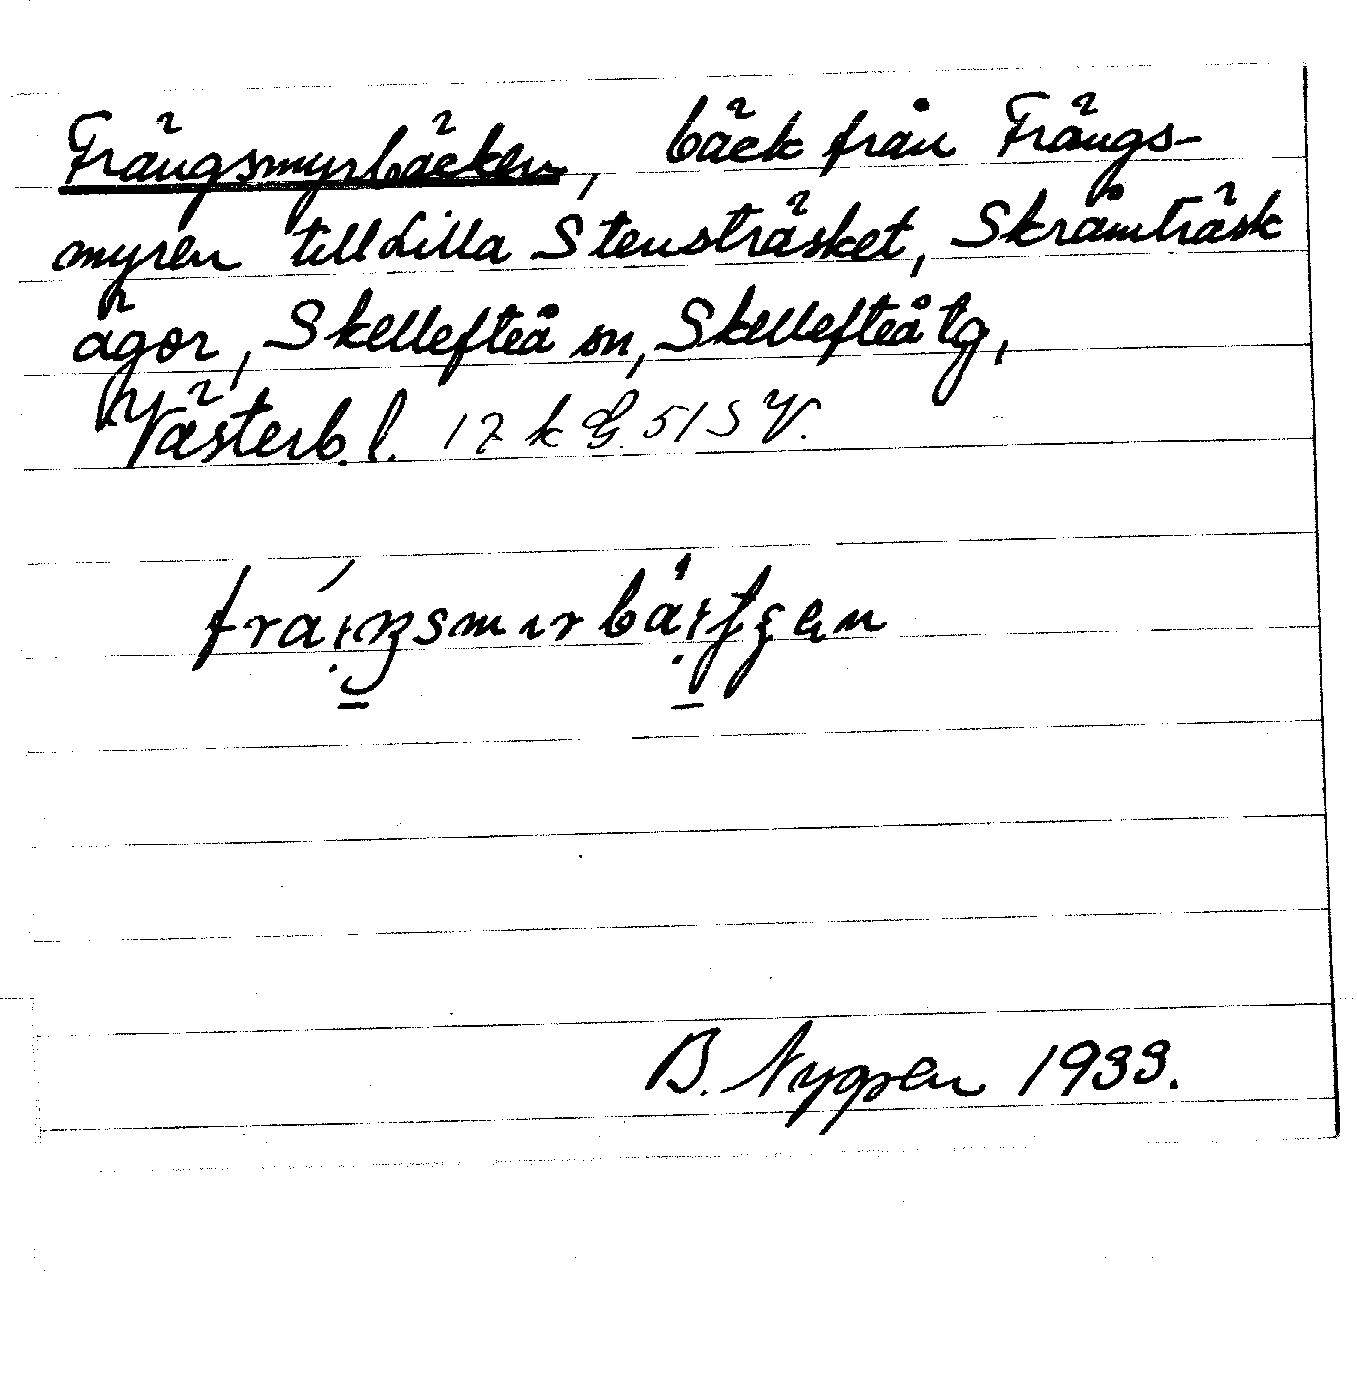 Trängsmyrbäcken, bäck från Trängs-
myren till Lilla Stensträsket, Skråmträsk
ägor, Skellefteå sn, Skellefteå tg,
Västerb. l. 12 k G. 515 V.
B. Nygren 1933.